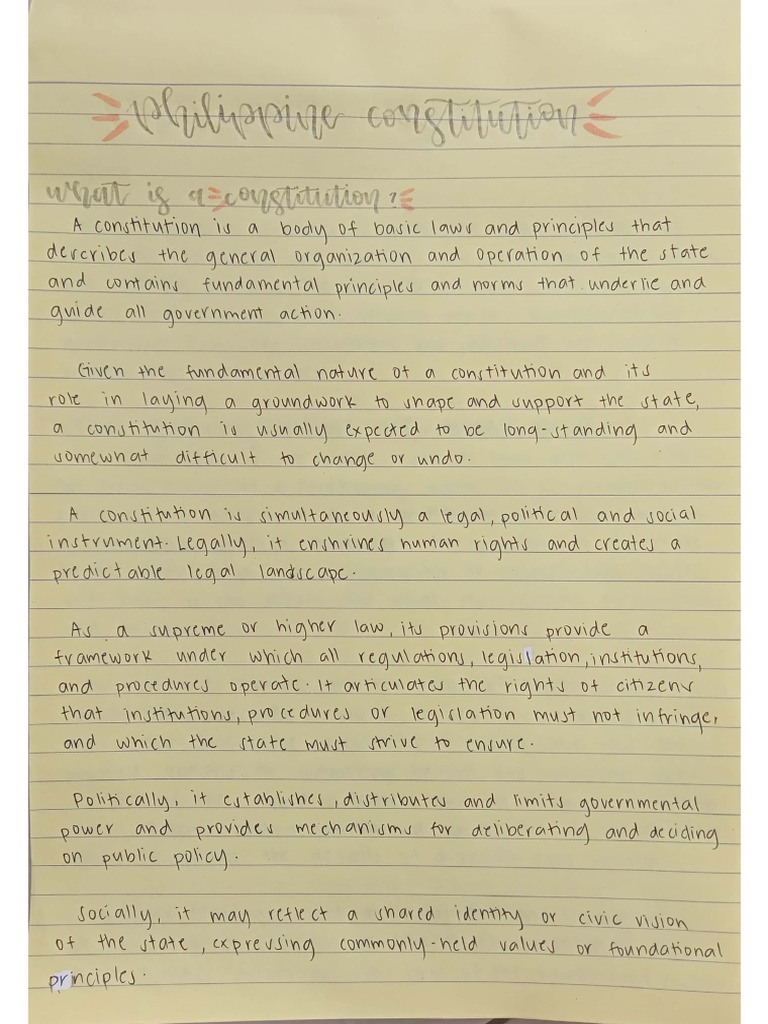 Philippine constitution
what is a constitution?
A constitution is a body of basic laws and principles that
describes the general organization and operation of the state
and contains fundamental principles and norms that underlie and
guide all government action.
Given the fundamental nature of a constitution and its
role in laying a groundwork to shape and support the state,
a constitution is usually expected to be long-standing and
somewhat difficult to change or undo.
A constitution is simultaneously a legal, political and social
instrument. Legally, it enshrines human rights and creates a
predictable legal landscape.
As a supreme or higher law, its provisions provide a
framework under which all regulations, legislation, institutions,
and procedures operate. It articulates the rights of citizens
that institutions, procedures or legislation must not infringe,
and which the state must strive to ensure.
Politically, it establishes, distributes and limits governmental
power and provides mechanisms for deliberating and deciding
on public policy.
Socially, it may reflect a shared identity or civic vision
of the state, expressing commonly-held values or foundational
principles.